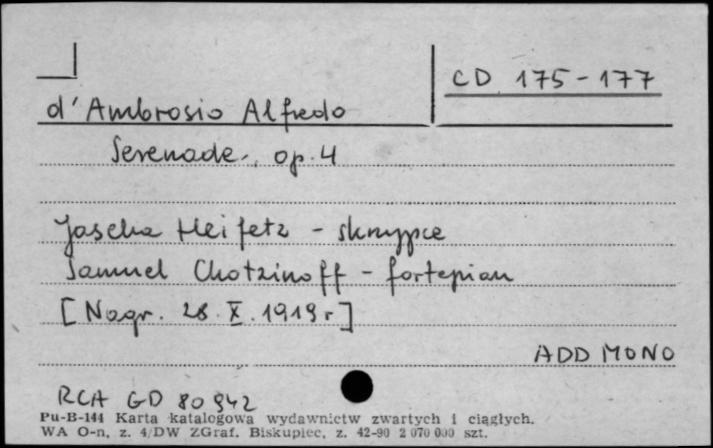 CD 175-177
d'Ambrosio Alfredo
Serenade, op. 4
Jascha Heifetz - skrzypce
Samuel Chotzinoff - fortepian
[Nagr. 28. X. 1919 r]
ADD MONO
RCA GD 80 942
Pu-B-144 Karta katalogowa wydawnictw zwartych i ciągłych.
WA O-n, z. 4/DW ZGraf. Biskupiec, z. 42-90 2 070 000 szt.